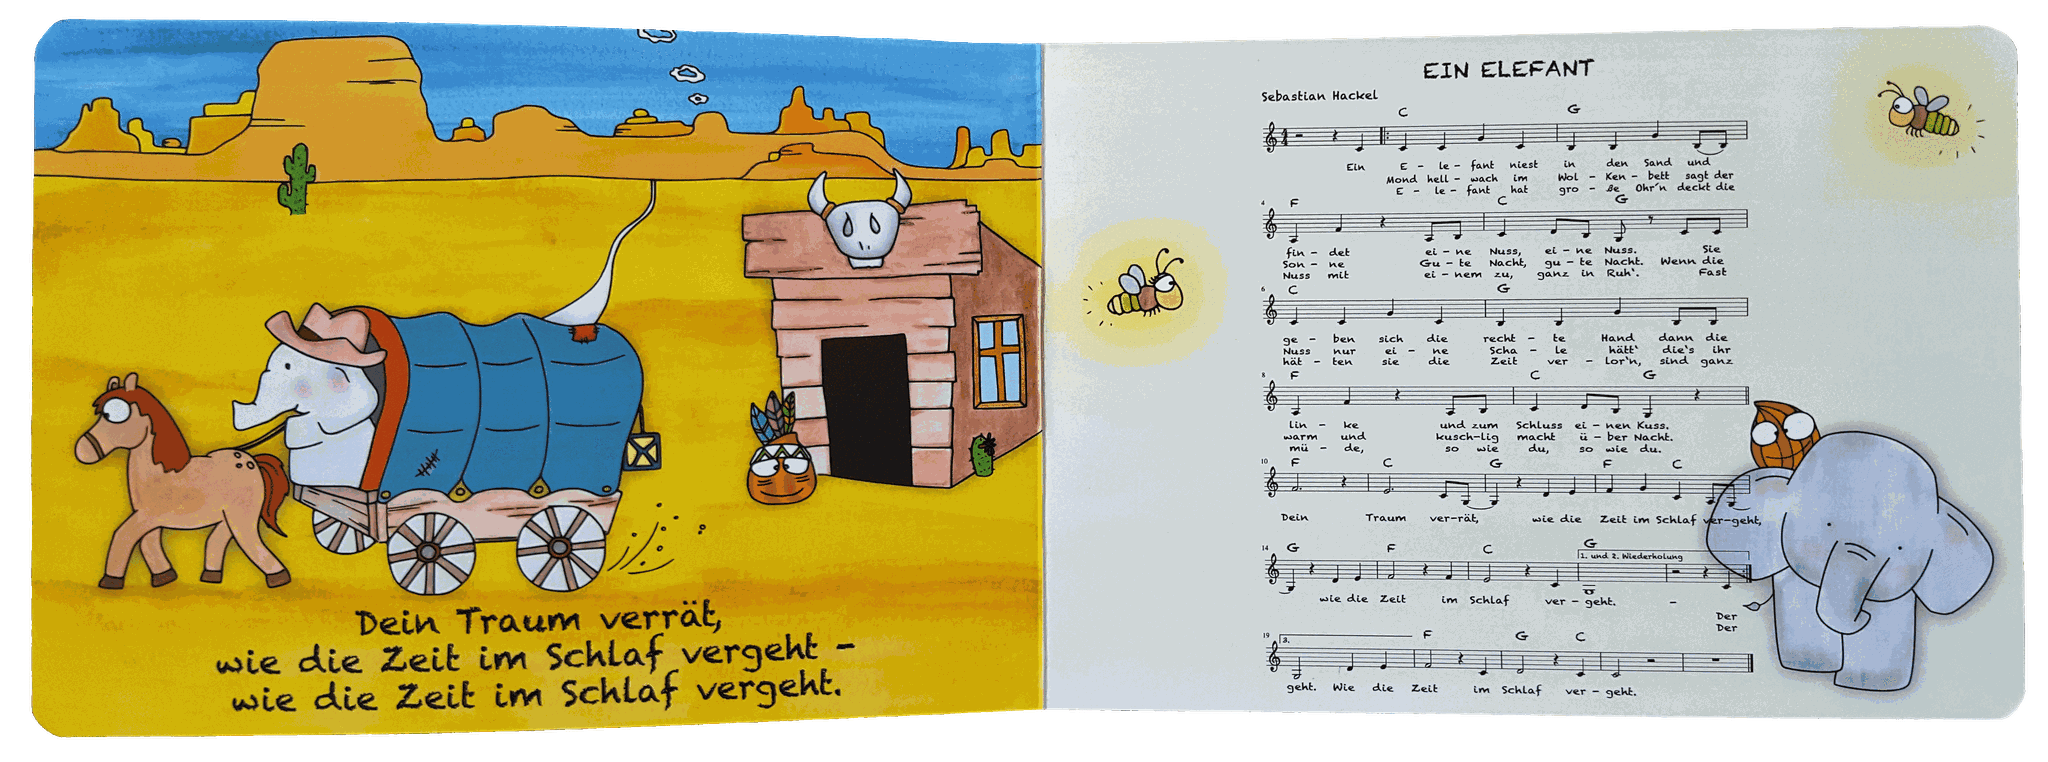 Dein Traum verrät,
wie die Zeit im Schlaf vergeht –
wie die Zeit im Schlaf vergeht.
EIN ELEFANT
Sebastian Hackel
C G
Ein E - le - fant niest in den Sand und
Mond hell - wach im Wol - Ken - bett sagt der
E - le - fant hat gro - ße Ohr'n deckt die
4 F C G
fin - det ei - ne Nuss, ei - ne Nuss. Sie
Son - ne Gu - te Nacht, gu - te Nacht. Wenn die
Nuss mit ei - nem zu, ganz in Ruh'. Fast
6 C G
ge - ben sich die recht - te Hand dann die
Nuss nur ei - ne Scha - le hätt' die's ihr
hät - ten sie die Zeit ver - lor'n, sind ganz
8 F C G
lin - ke und zum Schluss ei - nen Kuss.
warm und kusch-lig macht ü - ber Nacht.
mü - de, so wie du, so wie du.
10 F C G F C
Dein Traum ver-rät, wie die Zeit im Schlaf ver-geht,
14 G F C G
1. und 2. Wiederholung
wie die Zeit im Schlaf ver - geht. -
Der
Der
19 3. F G C
geht. Wie die Zeit im Schlaf ver - geht.